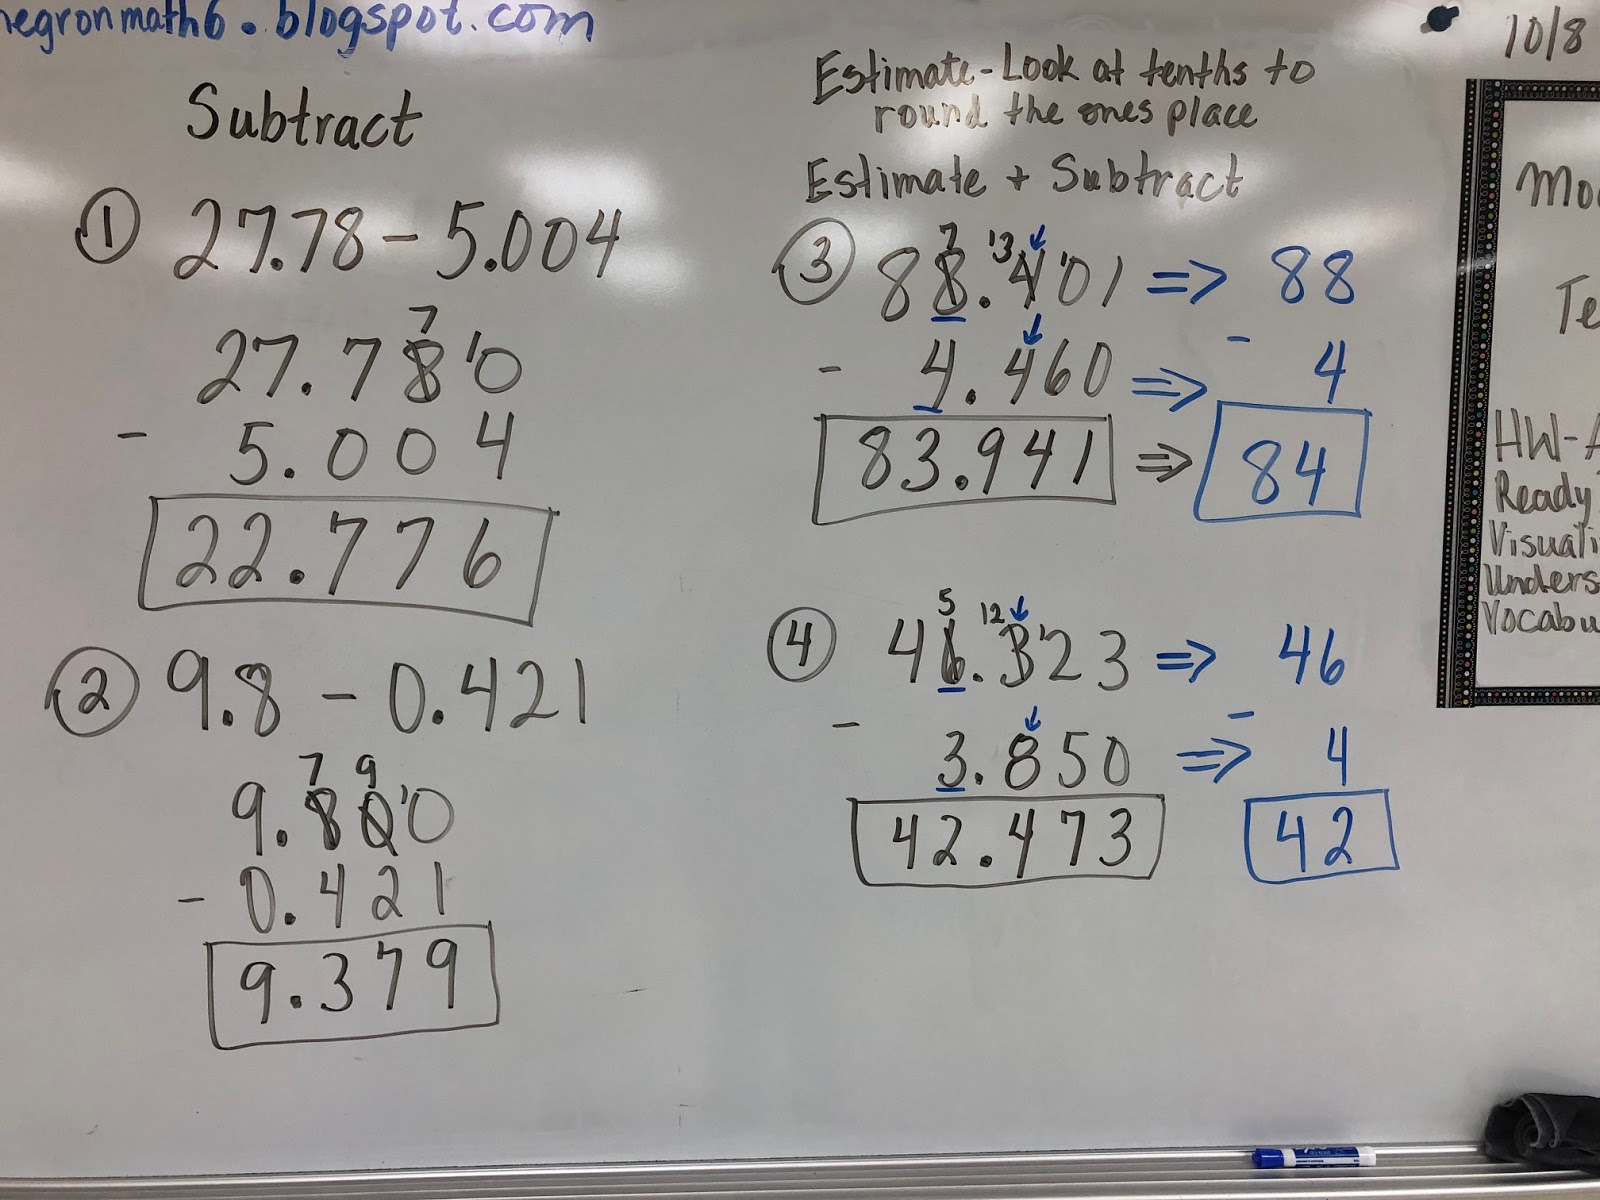 negronmath6.blogspot.com
Subtract
① 27.78 - 5.004
7
27.78'0
- 5.004
22.776
② 9.8 - 0.421
7 9
9.80'0
- 0.421
9.379
Estimate - Look at tenths to
round the ones place
Estimate + Subtract
7 '3
③ 88.4'01 => 88
- 4.460 => - 4
83.941 => 84
5 12
④ 46.3'23 => 46
- 3.850 => - 4
42.473 42
10/8
HW-
Ready